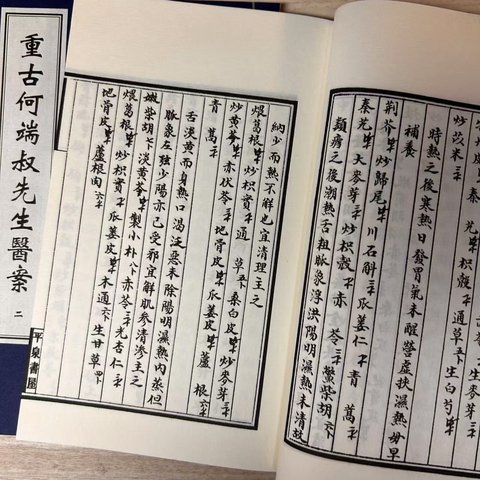 炒苡米 通草 生白芍
時熱之後寒熱日發胃氣未醒營虛挾濕熱毋早
補養
荊芥 炒歸尾 川石斛 瓜蔞仁 青蒿
秦艽 大麥芽 炒枳殼 赤苓 鱉柴胡
類瘧之後潮熱舌粗脈象浮洪陽明濕熱未清故
納少而熱不解也宜清理主之
煨葛根 炒枳實 通草 桑白皮 炒麥芽
炒黃芩 赤茯苓 地骨皮 瓜蔞皮 蘆根
青蒿
舌淡黃而身熱口渴泛惡未除陽明濕熱內蒸但
脈象左弦少陽亦已受邪宜解肌參清滲主之
嫩柴胡 淡黃芩 製小朴 赤苓 光杏仁
煨葛根 炒枳實 瓜蔞皮 木通 生甘草
地骨皮 蘆根肉
平泉書屋
重古何端叔先生醫案 二